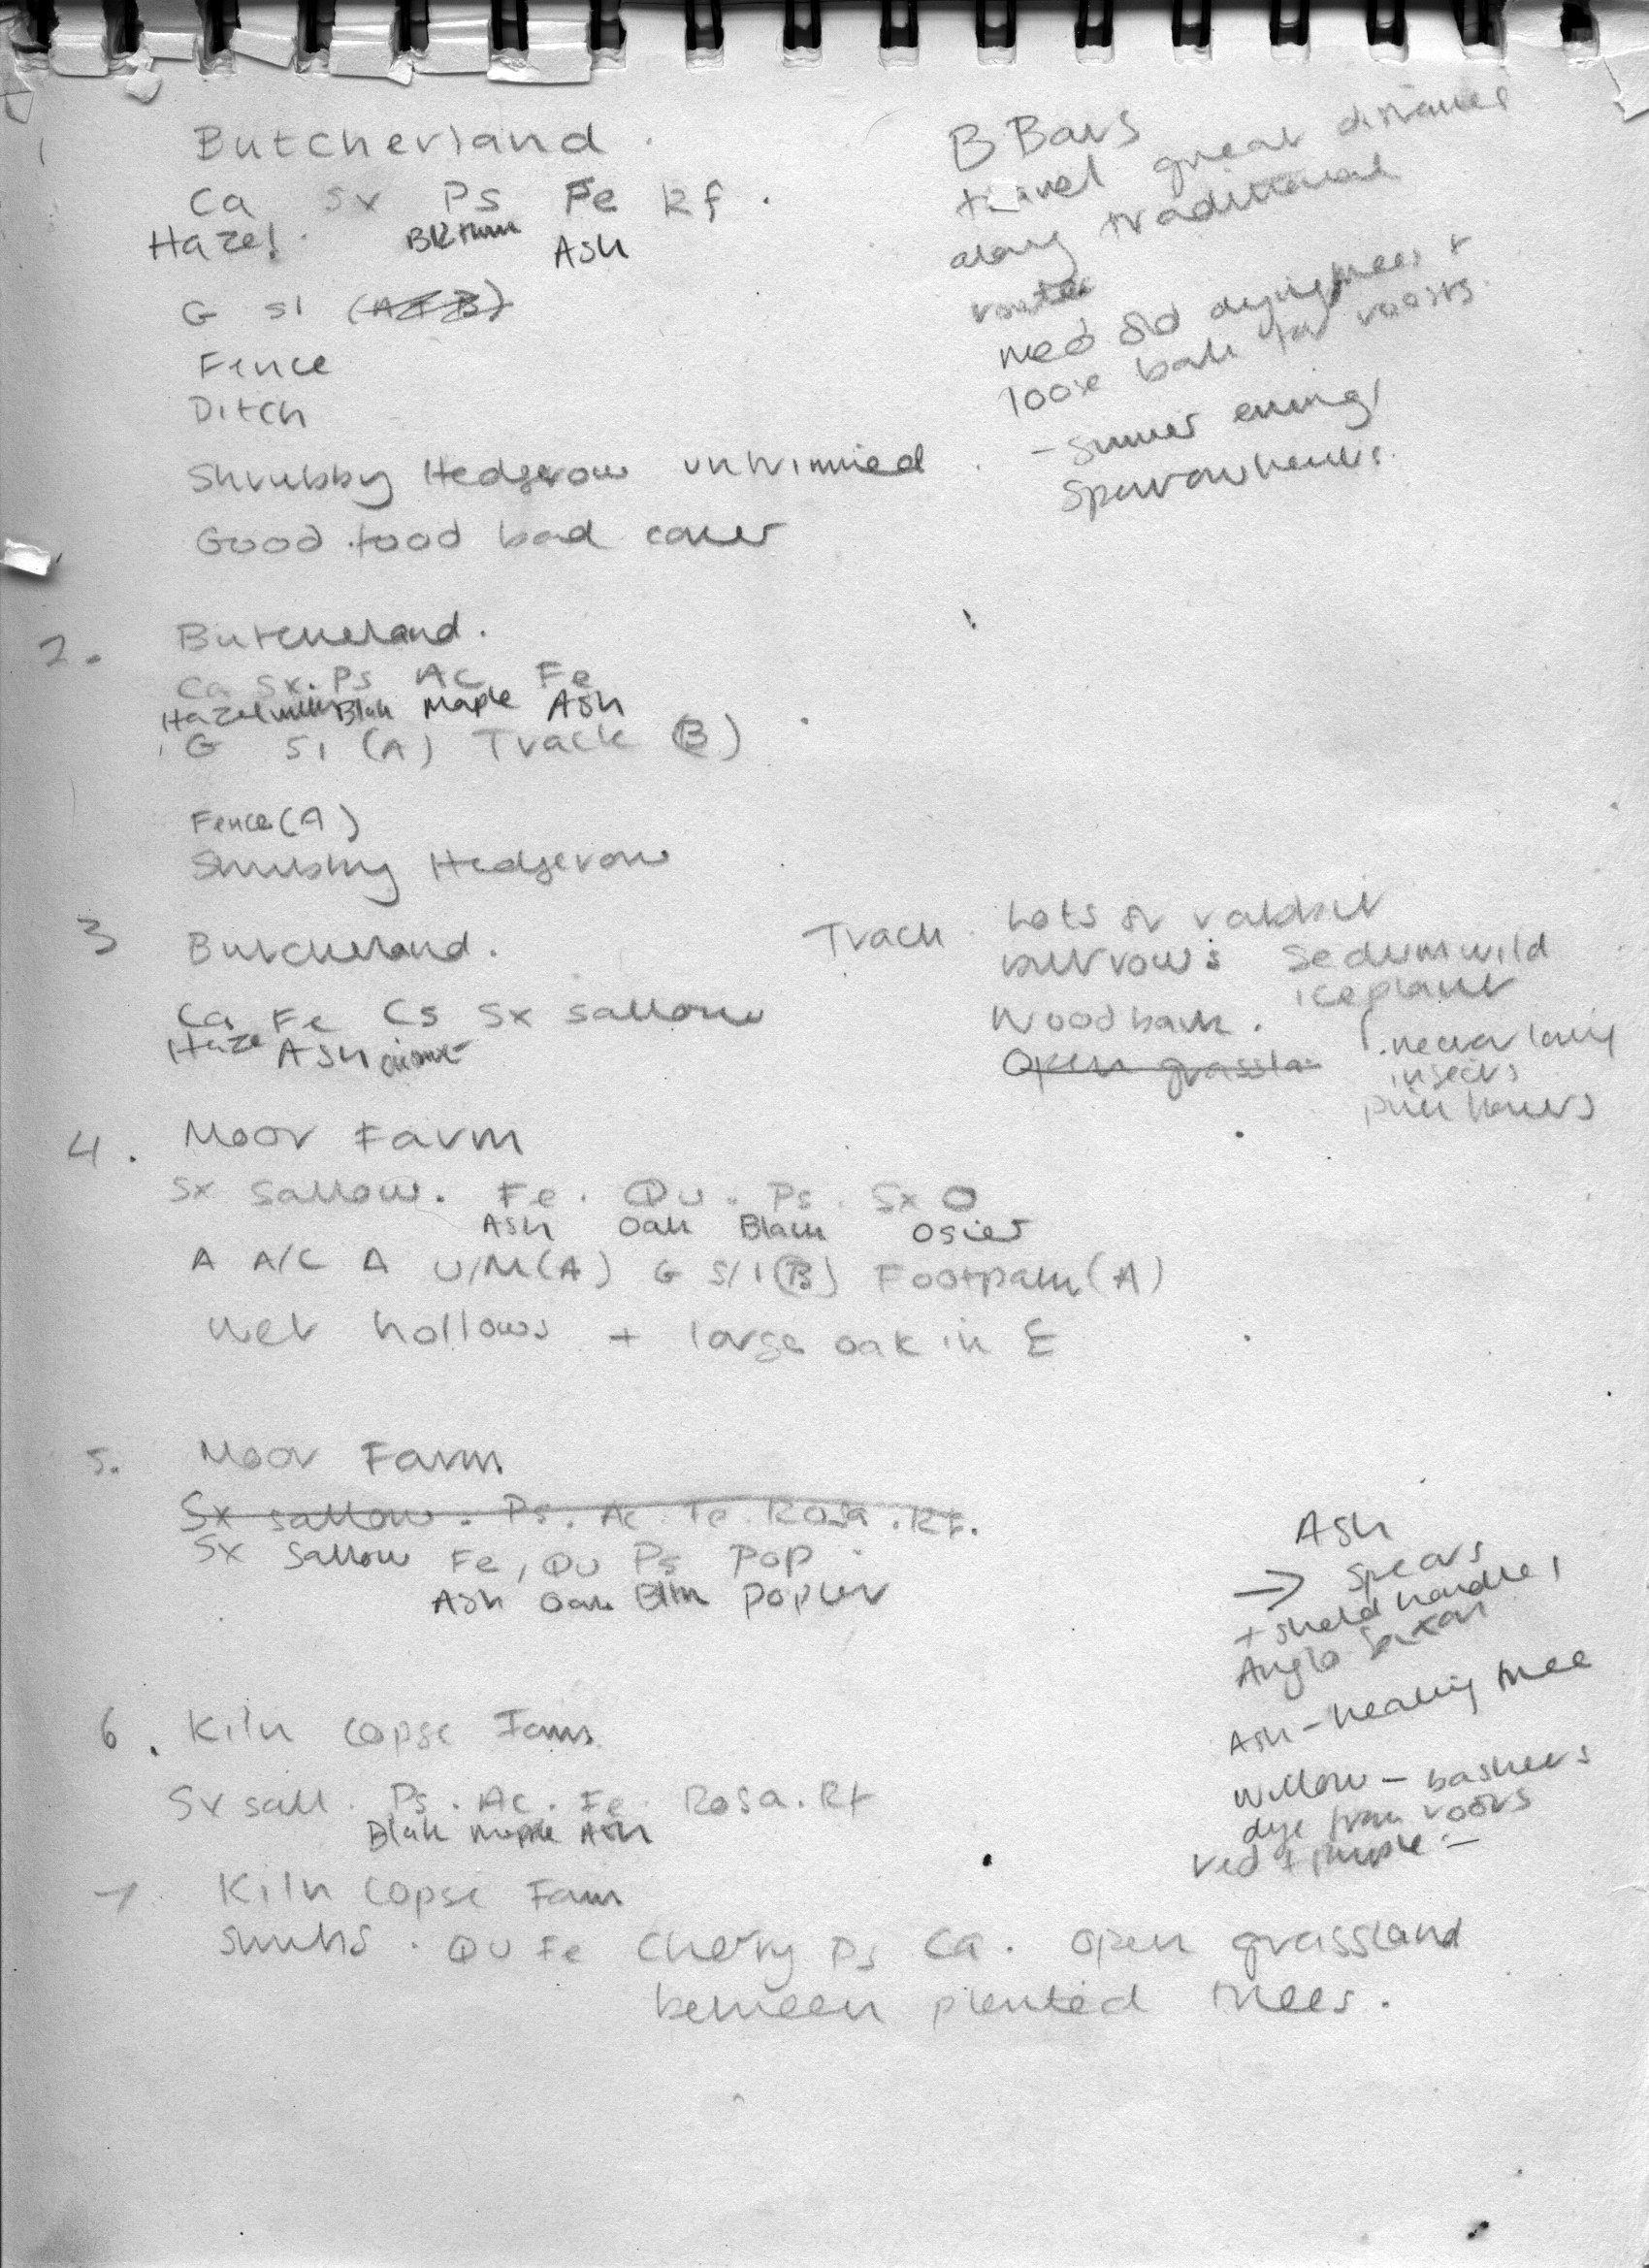 1 Butcherland.
Ca Sx Ps Fe Rf.
Hazel Bkthn Ash
G SI (A+B)
Fence
Ditch
Shrubby Hedgerow untrimmed
Good food bad cover
B Bars
travel great distances
along traditional
routes
need old dying trees +
loose bark for roosts.
- summer evenings
Sparrowhawks.
2. Butcherland.
Ca Sx. Ps Ac Fe
Hazel Blak Maple Ash
G SI (A) Track (B)
Fence (A)
Shrubby Hedgerow
3 Butcherland.
Ca Fe Cs Sx sallow
Haze Ash
Track. Lots of rabbit
burrows
Woodbank.
Open grassla
Sedum wild
iceplant
nectar loving
insects
4. Moor Farm
Sx Sallow. Fe. Qu. Ps. Sx O
Ash Oak Black Osier
A A/C A U/M(A) G S/I(B) Footpath(A)
Wet hollows + large oak in E
5. Moor Farm
Sx sallow. Ps. Ac. Fe. Rosa. Rf.
Sx Sallow Fe, Qu Ps Pop.
Ash Oak Blkn Popler
Ash
→ Spears
+ shield handles
Anglo Saxon
Ash - healing tree
Willow - baskets
dye from roots
red + purple -
6. Kiln Copse Farm
Sx sall. Ps. Ac. Fe. Rosa. Rf
Blak Maple Ash
7 Kiln Copse Farm
Shrubs. Qu Fe Cherry Ps Ca. Open grassland
between planted trees.